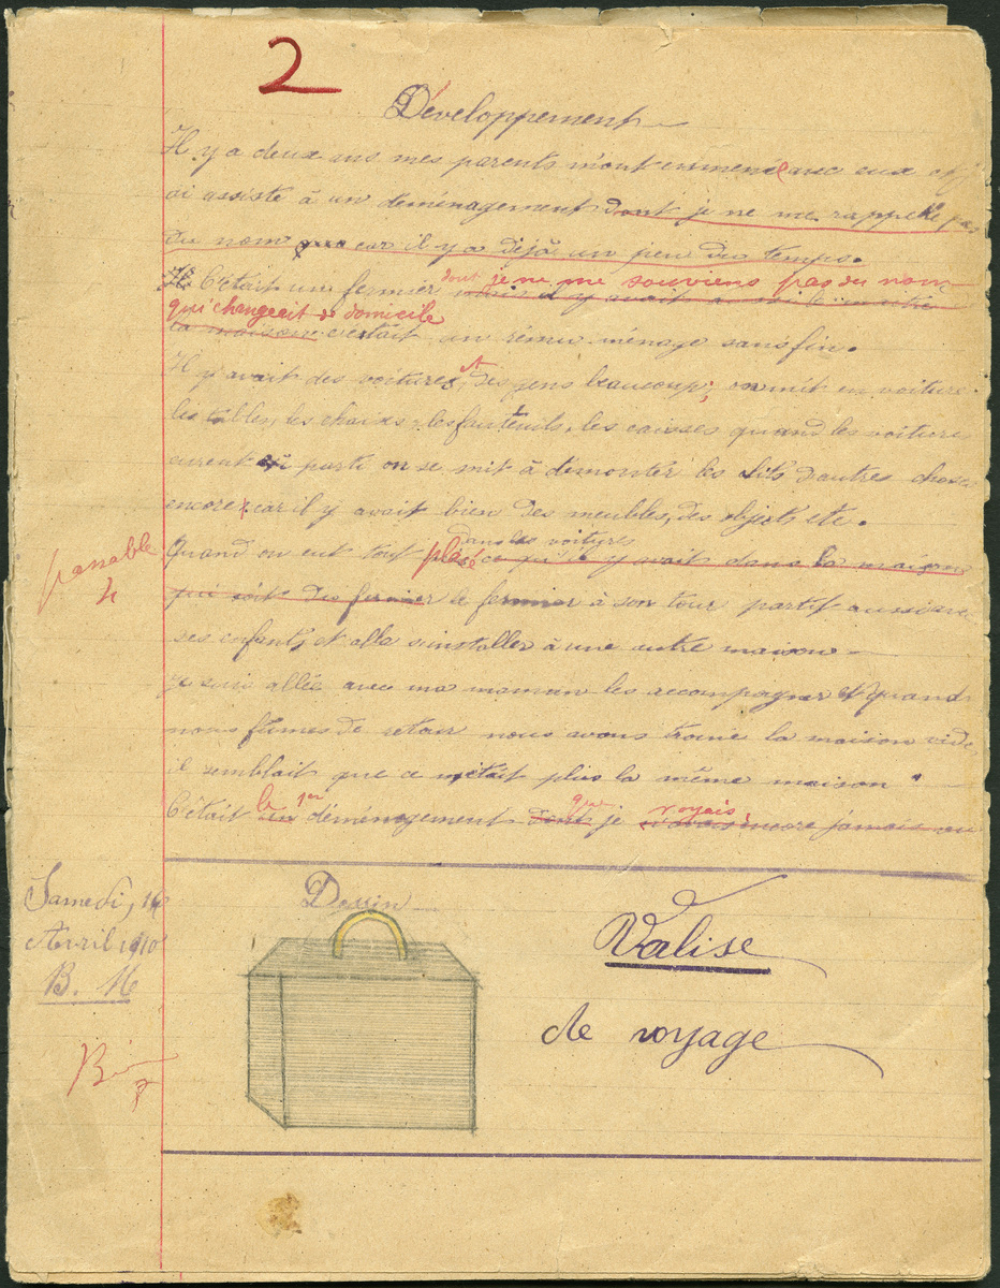 2
Développement
Il y a deux ans mes parents m'ont emmenée avec eux et j'
ai assisté à un déménagement dont je ne me rappelle pas
du nom car il y a déjà un peu du temps.
C'était un fermier dont je ne me souviens pas du nom
qui changeait de domicile
la maison c'était un rému-ménage sans fin.
Il y avait des voitures, des gens beaucoup; on mit en voiture
les tables, les chaises, les fauteuils, les caisses quand les voitures
eurent parti on se mit à démonter les lits d'autres choses
encore, car il y avait bien des meubles, des objets, etc.
dans les voitures
Quand on eut tout placé ce qu'il y avait dans la maison
qui soit du fermier le fermier à son tour partit aussi avec
ses enfants, et alla s'installer à une autre maison
Je suis allée avec ma maman les accompagner et quand
nous fûmes de retour nous avons trouvé la maison vide
il semblait que ce n'était plus la même maison
C'était le 1er déménagement que je voyais,
un dont encore jamais vu
passable
4
Samedi, 16
Avril 1910
B. M
Bien
7
Dessin
Valise
de voyage